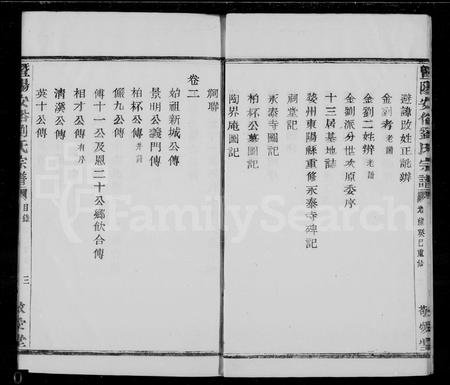 暨陽安俗劉氏宗譜 光緒癸巳重修 敬愛堂
避諱改姓正訛辨
金劉考 老圖
金劉二姓辨 老譜
金劉派分世次原委序
十三居基地誌
婺州東陽縣重修永泰寺碑記
祠堂記
永泰寺圖記
柏杯公墓圖記
陶界庵圖記
祠聯
卷二
始祖新城公傳
景明公義門傳
柏杯公傳 井湖
儼九公傳
傅十一公及恩二十公鄉飲合傳
相才公傳 有序
清溪公傳
英十公傳
暨陽安俗劉氏宗譜 目錄 三 敬愛堂
FamilySearch